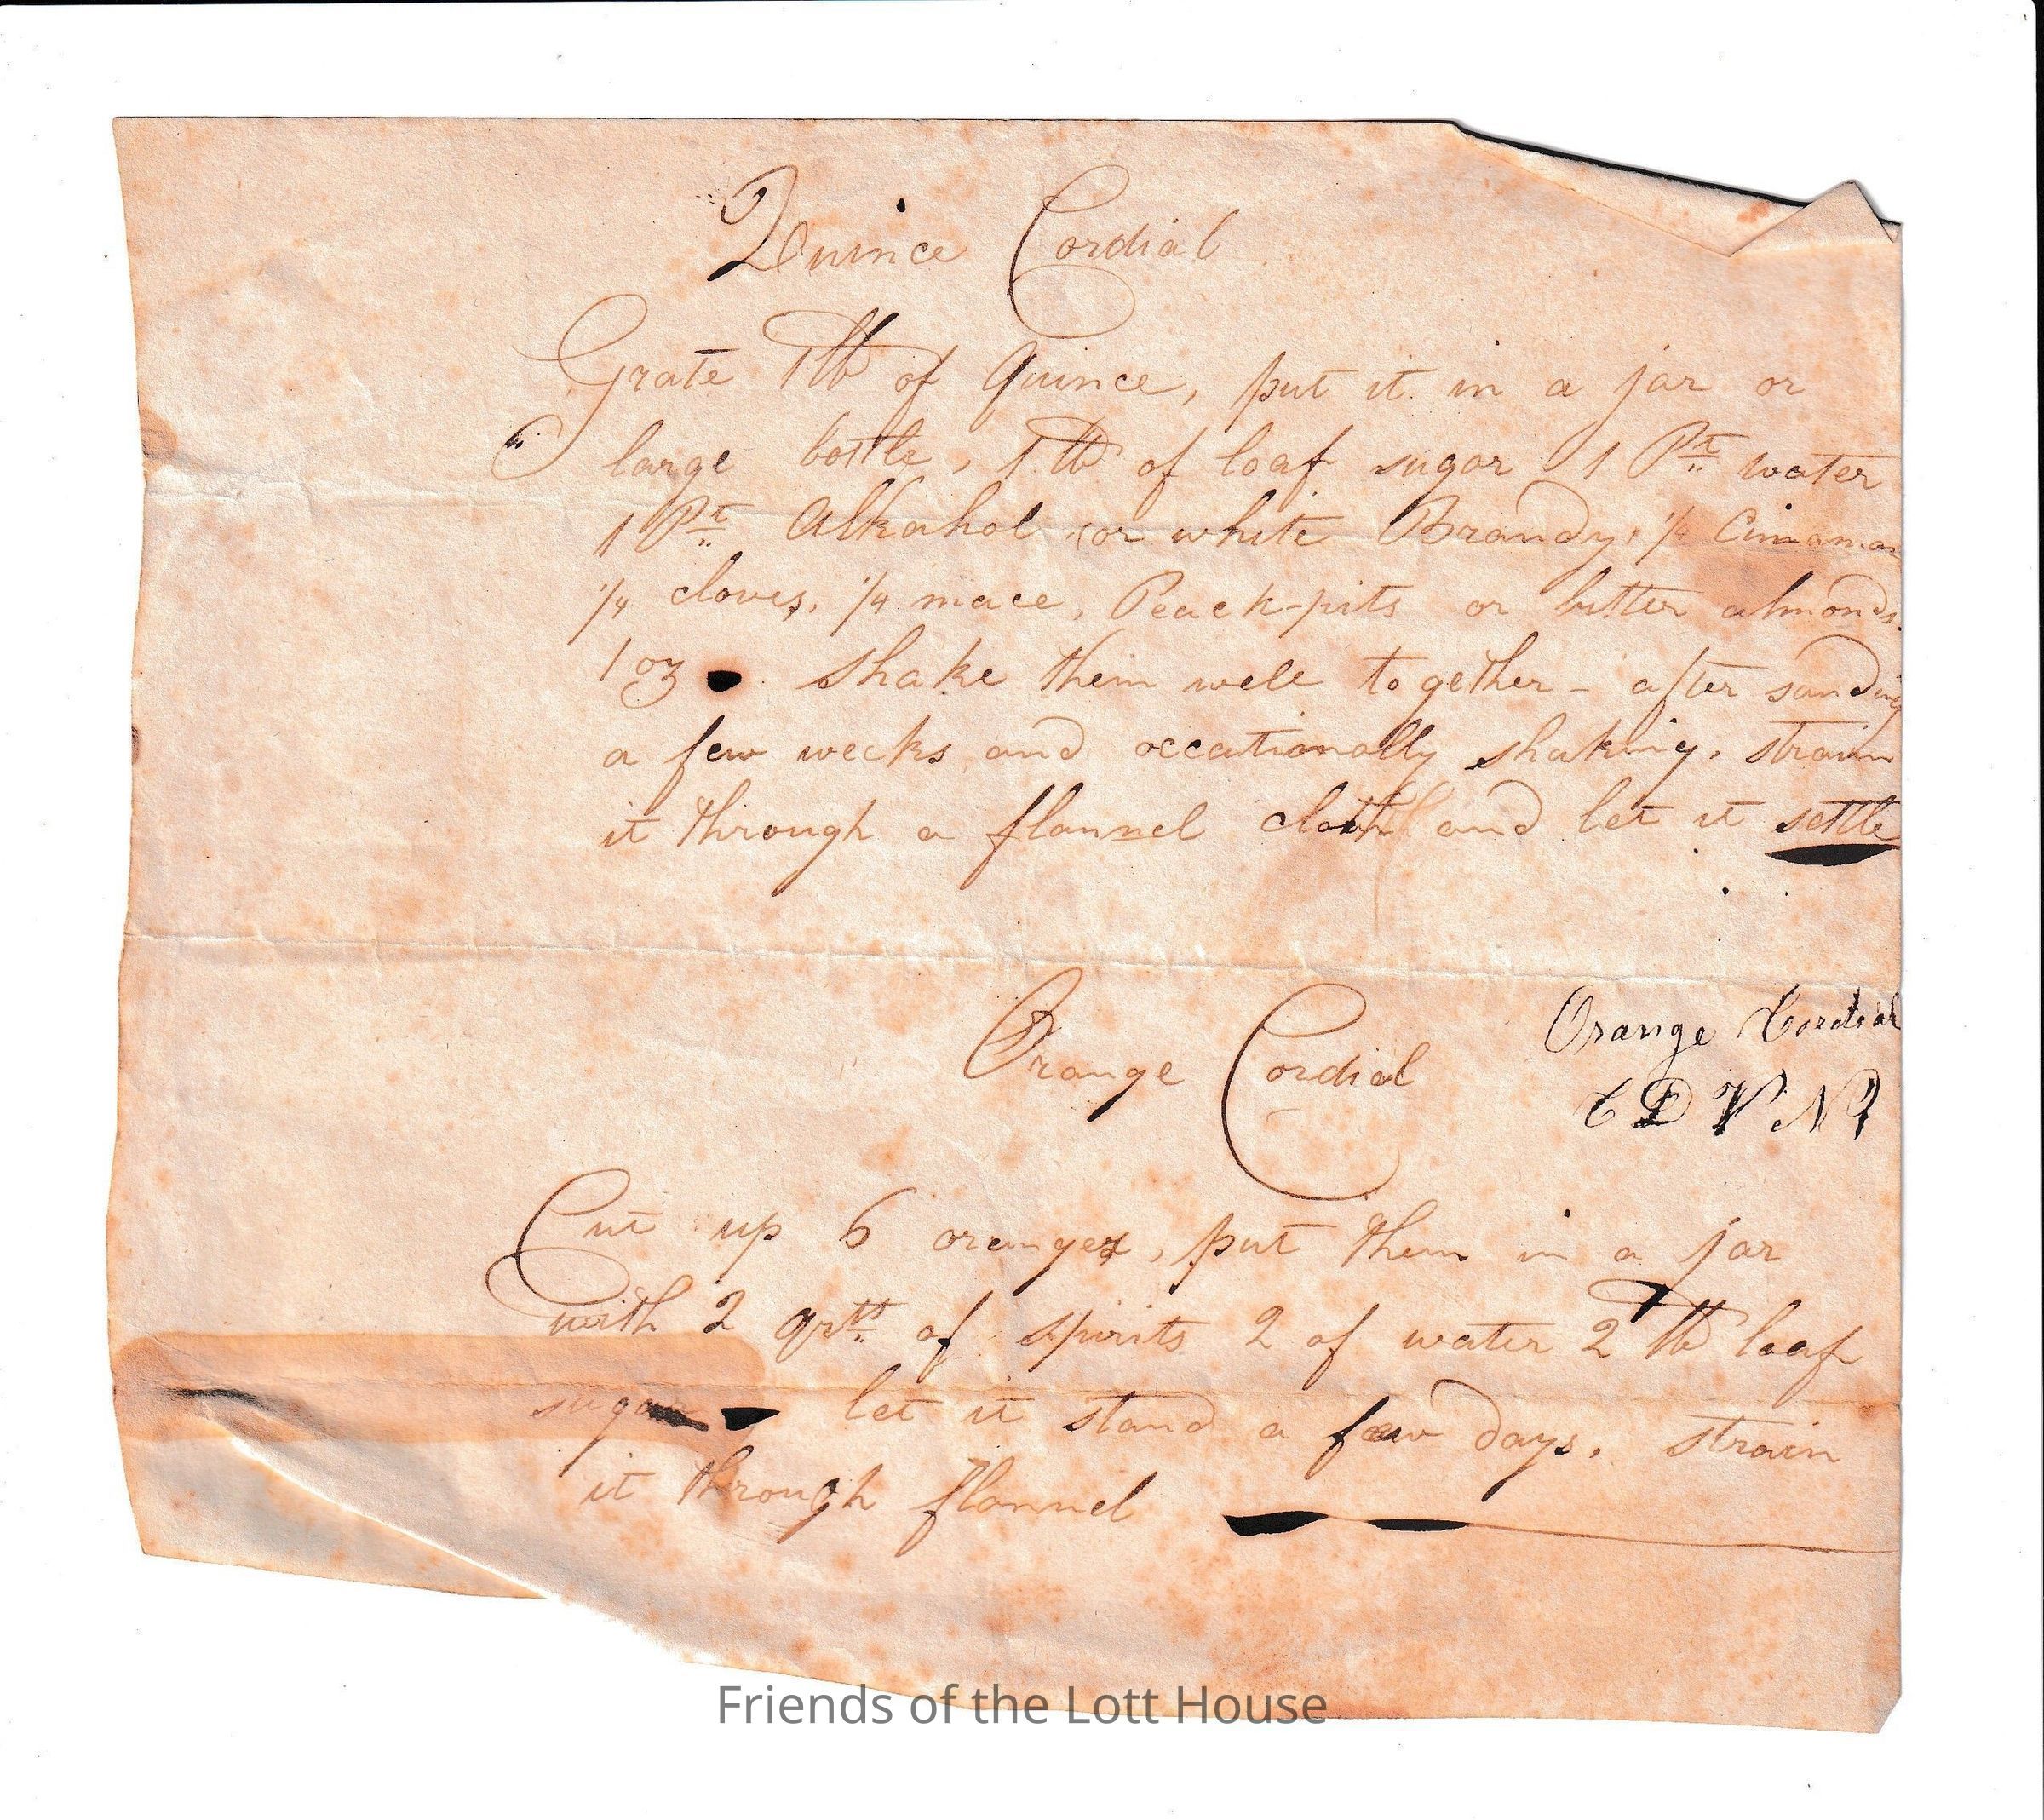 Quince Cordial
Grate 1 lb of quince, put it in a jar or
large bottle, 1 lb of loaf sugar 1 Pt water
1 Pt Alkahol, (or white Brandy, 1/4 Cinnamon
1/4 cloves, 1/4 mace, Peach-pits or bitter almonds.
1 oz shake them well together - after sanding
a few weeks and occationally shaking, strain
it through a flannel cloth and let it settle
Orange Cordial
Orange Cordial
C D V N
Cut up 6 oranges, put them in a jar
with 2 qrts of spirits 2 of water 2 lb loaf
sugar let it stand a few days. strain
it through flannel
Friends of the Lott House